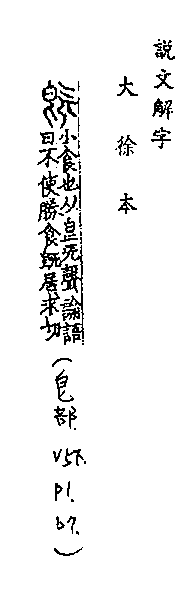 説文解字
大徐本
小食也从皀旡聲論語
曰不使勝食既居未切
(皀部. V5下. P1. b7.)